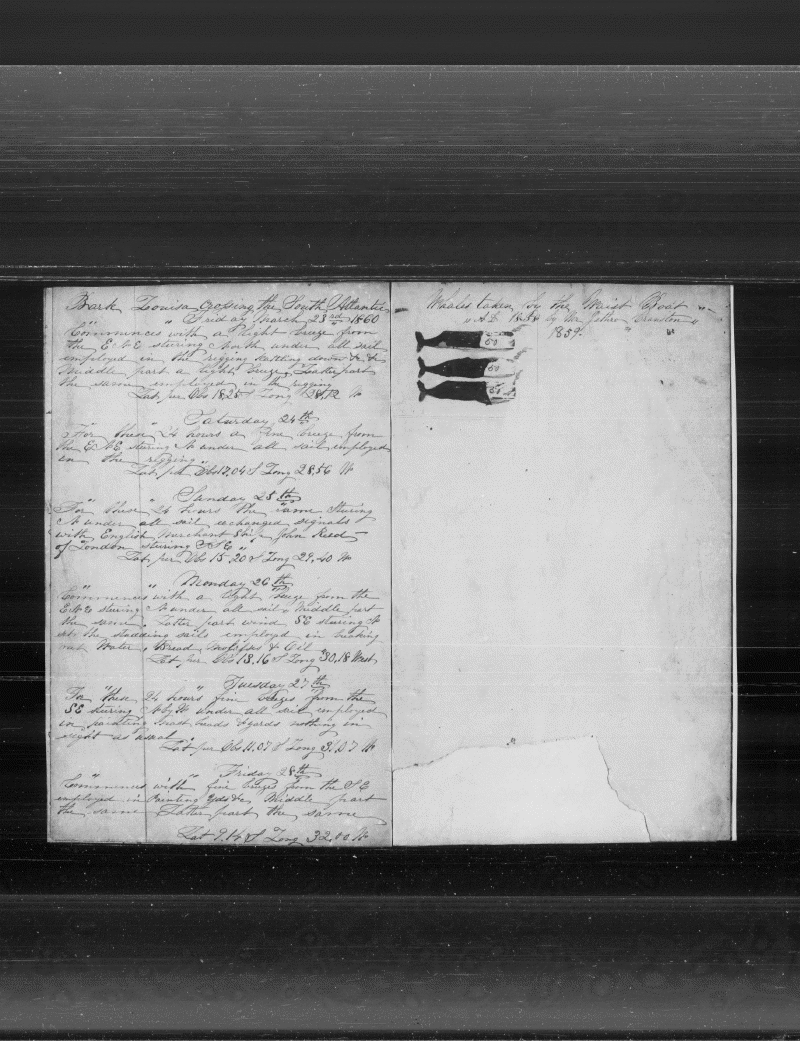 Bark Louisa Crossing the South Atlantic
" Friday March 23rd 1860
Commences with a light breze from
the E.N.E sturing North under all sail
employed in the rigging rattling down & &
Middle part a light breze, Latter part
the same employed in the rigging
Lat per Obs 18.25 S Long W
Saturday 24th
For these 24 hours a fine breze from
the E.N.E sturing N under all sail employed
in the rigging
Lat per Obs 17.04 S Long 28,56 W
" Sunday 25th
For these 24 hours the same sturing
N under all sail exchanged signals
with English Merchant Ship John Reed
of London sturing SSE "
Lat per Obs 15.20 S Long 29,40 W
" Monday 26th
Commences with a light breze from the
E.N.E sturing N under all sail, Middle part
the same, Latter part wind SE sturing N
set the studding sails employd in breaking
out Water, Bread Molasses & Oil
Lat per Obs 13.16 S Long 30,18 West
" Tuesday 27th
For these 24 hours fine brezes from the
SE sturing N by W under all sail employed
in painting mast heads & yards nothing in
sight as usual
Lat per Obs 11.07 S Long W
Friday 28th
Commences with fine brezes from the S.E
employed in Painting Yds & c Middle part
the same Latter part the same
Lat 9.14 S Long 32,00 W
Whales taken by the Waist Boat "
" A.D. 1858 by Mr
1859. " "
60
60
60